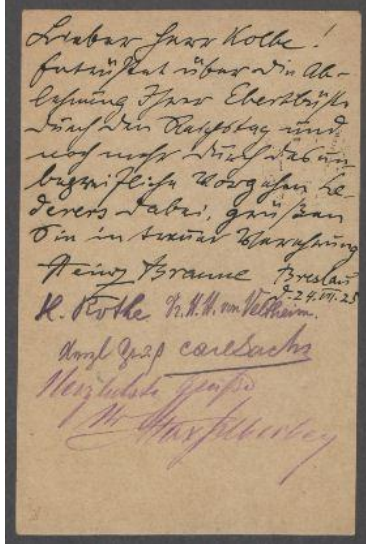 Lieber Herr Kolbe!
Entrüstet über die Ab-
lehnung Ihrer Ebertbüste
durch den Reichstag und
noch mehr durch das un-
begreifliche Vorgehen Le-
derers dabei, grüßen
Sie in treuer Verehrung
Heinz Braune Breslau
d. 24. VII. 25
H. Rothe Dr. H. H. von Veltheim.
Herzl Gruß Carl Sachs
Herzlichste Grüße
Ihr Max Silberberg